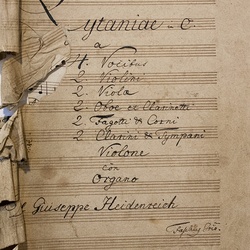 Lytaniae - C.
a
4. Vocibus
2. Violini
2. Viola
2. Oboe et Clarinetti
2 Fagotti & Corni
2 Clarini & Tympani
Violone
con
Organo
Giuseppe Heidenreich